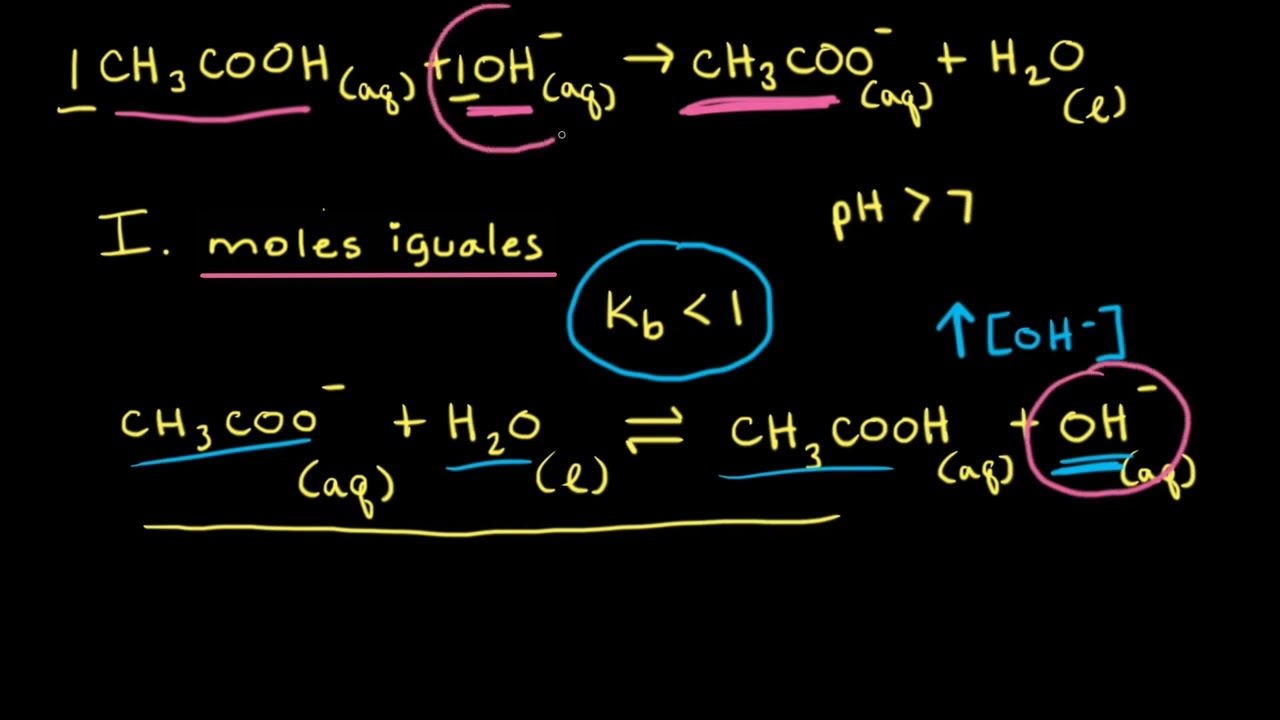 1 CH₃COOH(aq) + 1OH⁻(aq) → CH₃COO⁻(aq) + H₂O(l)
pH > 7
I. moles iguales
Kb < 1
↑[OH⁻]
CH₃COO⁻(aq) + H₂O(l) ⇌ CH₃COOH(aq) + OH⁻(aq)